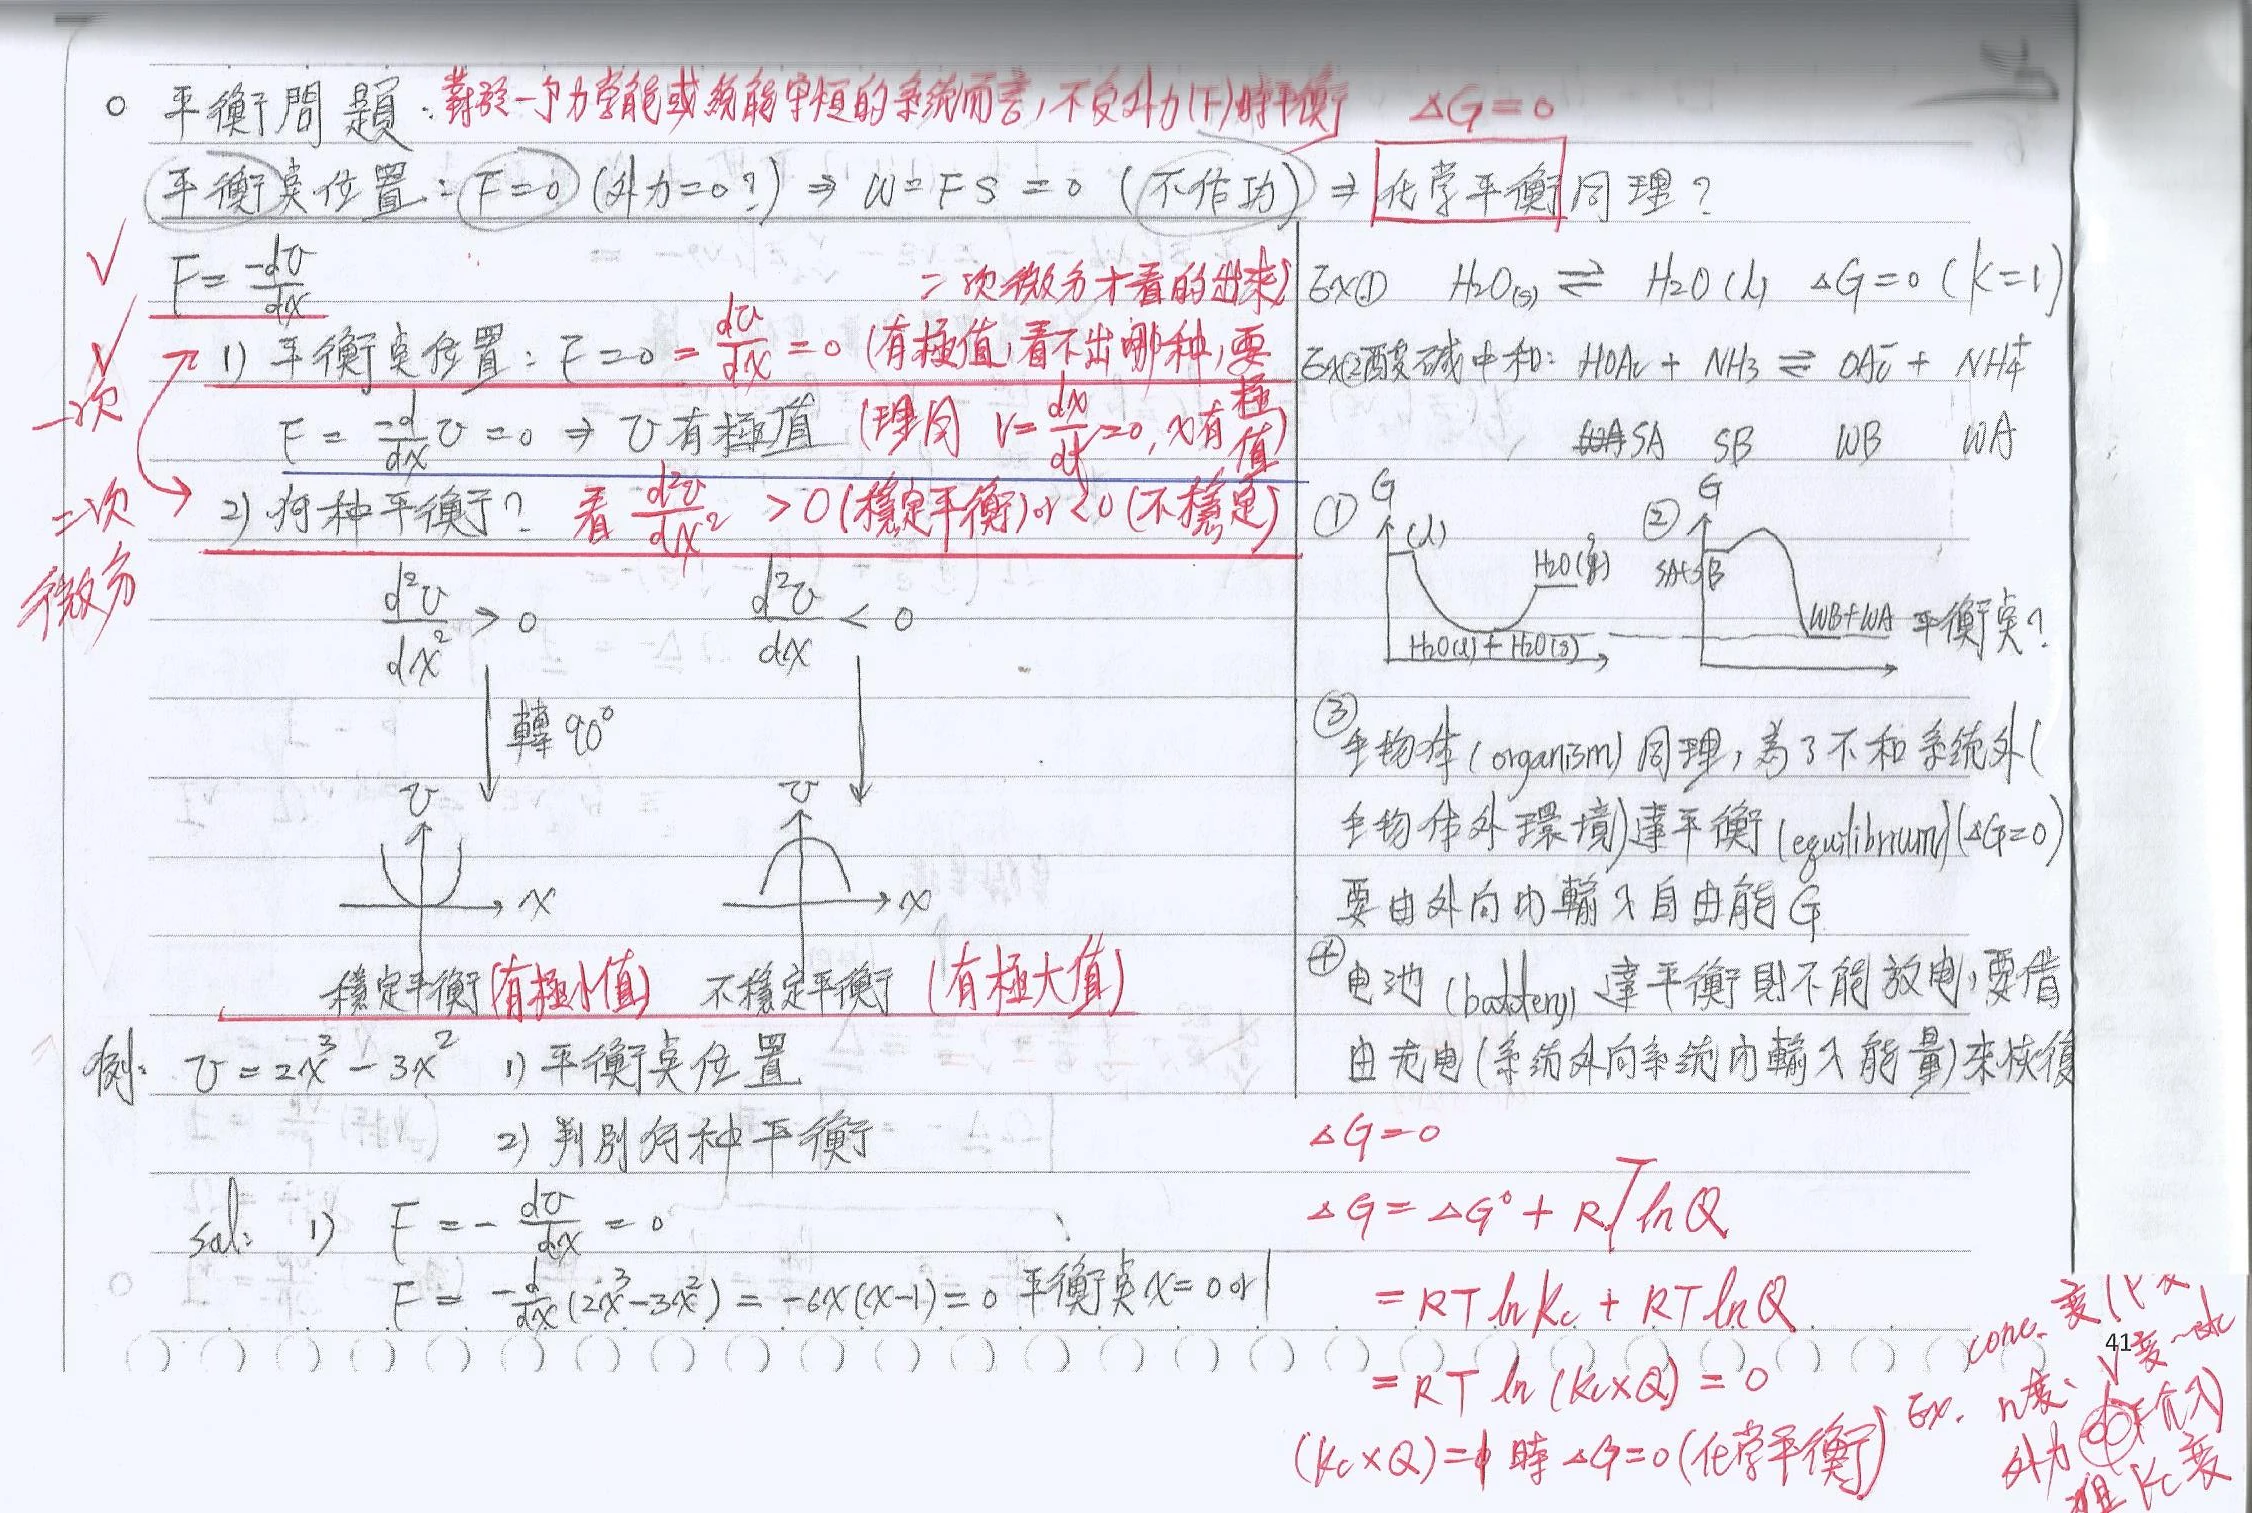 平衡問題：對於一个力学能或總能守恒的系統而言，不受外力(F)時平衡 △G=0
平衡奌位置：F=0 (外力=0?) ⇒ W=FS=0 (不作功) ⇒ 化学平衡同理?
F = -dU/dx
二次微分才看的出來)
1) 平衡奌位置：F=0 = dU/dx = 0 (有極值，看不出哪种，要
一次
F = -d/dx U = 0 ⇒ U有極值 (理同 V = dx/dt = 0, x有極值)
2) 何种平衡? 看 d²U/dx² >0 (穩定平衡) or <0 (不穩定)
二次
微分
d²U/dx² > 0
d²U/dx < 0
轉90°
U
x
U
x
穩定平衡(有極小值) 不穩定平衡 (有極大值)
例: U = 2x³ - 3x² 1) 平衡奌位置
2) 判別何种平衡
sol: 1) F = - dU/dx = 0
F = -d/dx (2x³-3x²) = -6x(x-1) = 0 平衡奌 x=0 or 1
Ex① H₂O(s) ⇌ H₂O(l) △G=0 (K=1)
Ex②酸碱中和: HOAc + NH₃ ⇌ OAc⁻ + NH₄⁺
SA SB WB WA
① G
(l)
H₂O(g)
H₂O(l) + H₂O(s)
② G
SA+SB
WB+WA 平衡奌?
③
生物体 (organism) 同理，為了不和系統外(
生物体外環境)達平衡 (equilibrium)(△G=0)
要由外向內輸入自由能G
④
电池 (battery) 達平衡則不能放电，要借
由充电(系統外向系統內輸入能量)來恢復
△G=0
△G = △G° + RT ln Q
= RT ln Kc + RT ln Q
= RT ln (Kc×Q) = 0
(Kc×Q)=1 時 △G=0 (化学平衡)
Ex.
conc. 變
n變
V變
外力
Kc變
41